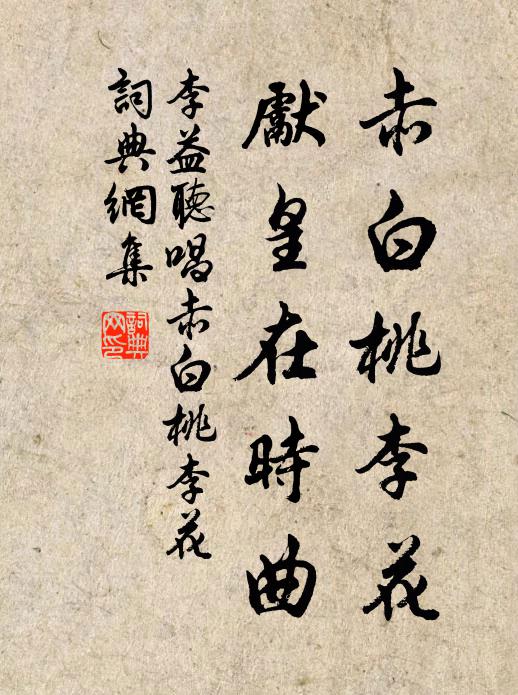 赤白桃李花
獻皇在時曲
李益聽唱赤白桃李花
詞典網集
詞典
网印